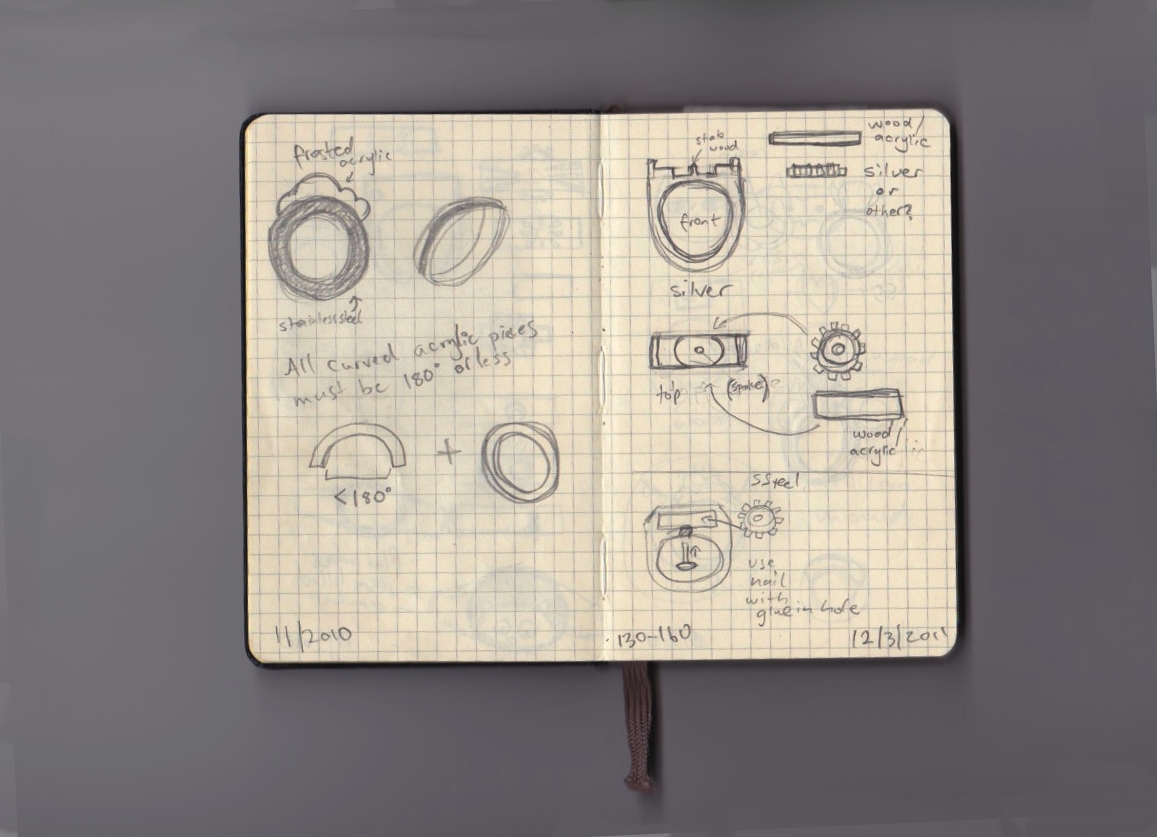 frosted
acrylic
stainless steel
All curved acrylic pieces
must be 180° or less
+
<180°
11/2010
stab
wood
wood/
acrylic
silver
or
other?
front
silver
top
(spoke)
wood/
acrylic
SSteel
use
nail
with
glue in hole
130-160
12/3/2011